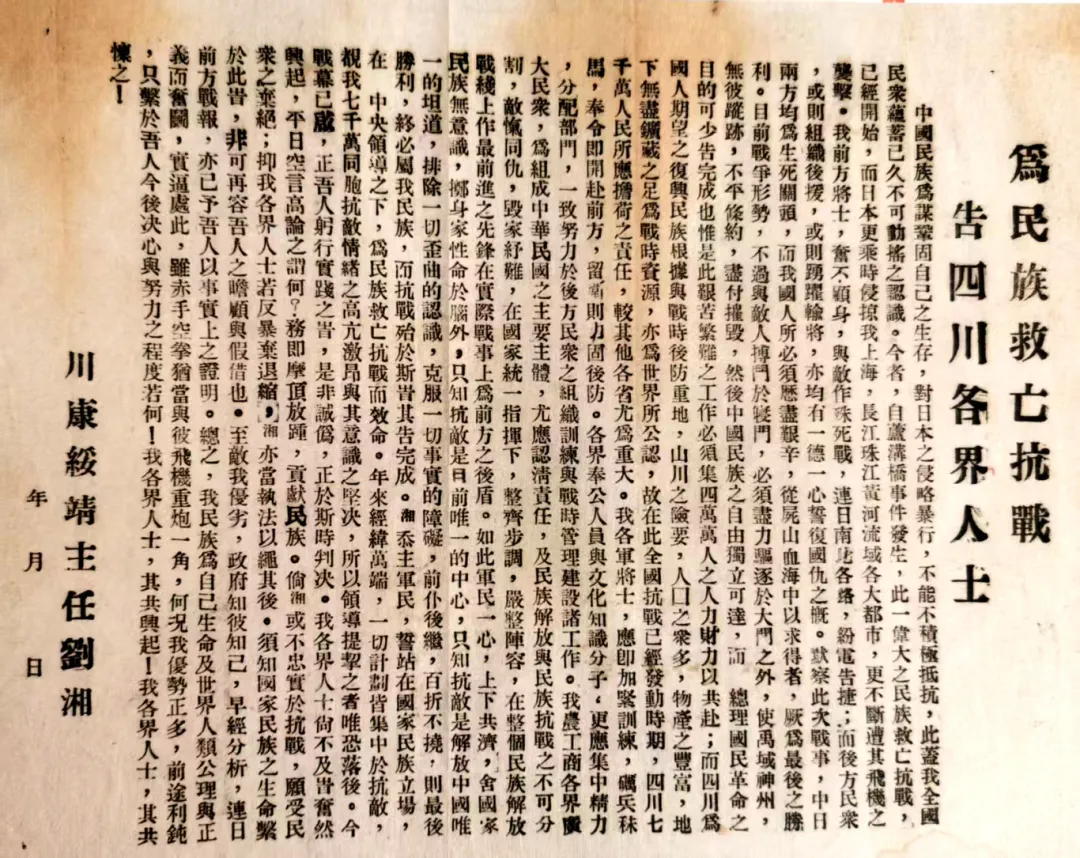 為民族救亡抗戰
告四川各界人士
中國民族為謀鞏固自己之生存，對日本之侵略暴行，不能不積極抵抗，此蓋我全國
民衆蘊蓄已久不可動搖之認識。今者，自蘆溝橋事件發生，此一偉大之民族救亡抗戰，
已經開始，而日本更乘時侵掠我上海，長江珠江黃河流域各大都市，更不斷遭其飛機之
襲擊。我前方將士，奮不顧身，與敵作殊死戰，連日南北各路，紛電告捷；而後方民衆
，或則組織後援，或則踴躍輸將，亦均有一德一心誓復國仇之慨。默察此次戰事，中日
兩方均為生死關頭，而我國人所必須歷盡艱辛，從屍山血海中以求得者，厥為最後之勝
利。目前戰爭形勢，不過與敵人搏鬥於寢門，必須盡力驅逐於大門之外，使禹域神州，
無彼蹤跡，不平條約，盡付摧毀，然後中國民族之自由獨立可達，而　總理國民革命之
目的可少告完成也惟是此艱苦繁難之工作必須集四萬萬人之人力財力以共赴；而四川為
國人期望之復興民族根據與戰時後防重地，山川之險要，人口之衆多，物產之豐富，地
下無盡鑛藏之足為戰時資源，亦為世界所公認，故在此全國抗戰已經發動時期，四川七
千萬人民所應擔荷之責任，較其他各省尤為重大。我各軍將士，應即加緊訓練，礪兵秣
馬，奉令即開赴前方，留衛則力固後防。各界奉公人員與文化知識分子，更應集中精力
，分配部門，一致努力於後方民衆之組織訓練與戰時管理建設諸工作。我農工商各界廣
大民衆，為組成中華民國之主要主體，尤應認清責任，及民族解放與民族抗戰之不可分
割，敵愾同仇，毀家紓難，在國家統一指揮下，整齊步調，嚴整陣容，在整個民族解放
戰綫上作最前進之先鋒在實際戰事上為前方之後盾。如此軍民一心，上下共濟，舍國家
民族無意識，擲身家性命於腦外，只知抗敵是目前唯一的中心，只知抗敵是解放中國唯
一的坦道，排除一切歪曲的認識，克服一切事實的障礙，前仆後繼，百折不撓，則最後
勝利，終必屬我民族，而抗戰殆於斯告其告完成。湘忝主軍民，誓站在國家民族立場，
在　中央領導之下，為民族救亡抗戰而效命。年來經緯萬端，一切計劃皆集中於抗敵，
覩我七千萬同胞抗敵情緒之高亢激昂與其意識之堅決，所以領導提挈之者唯恐落後。今
戰幕已啟，正吾人躬行實踐之時，是非誠偽，正於斯時判决。我各界人士尙不及時奮然
興起，平日空言高論之謂何？務即摩頂放踵，貢獻民族。倘湘或不忠實於抗戰，願受民
衆之棄絕；抑我各界人士若反暴棄退縮，湘亦當執法以繩其後。須知國家民族之生命繫
於此時，非可再容吾人之瞻顧與假借也。至敵我優劣，政府知彼知己，早經分析，連日
前方戰報，亦已予吾人以事實上之證明。總之，我民族為自己生命及世界人類公理與正
義而奮鬪，實逼處此，雖赤手空拳猶當與彼飛機重炮一角，何况我優勢正多，前途利鈍
，只繫於吾人今後决心與努力之程度若何！我各界人士，其共興起！我各界人士，其共
懍之！
川康綏靖主任劉湘
年　月　日